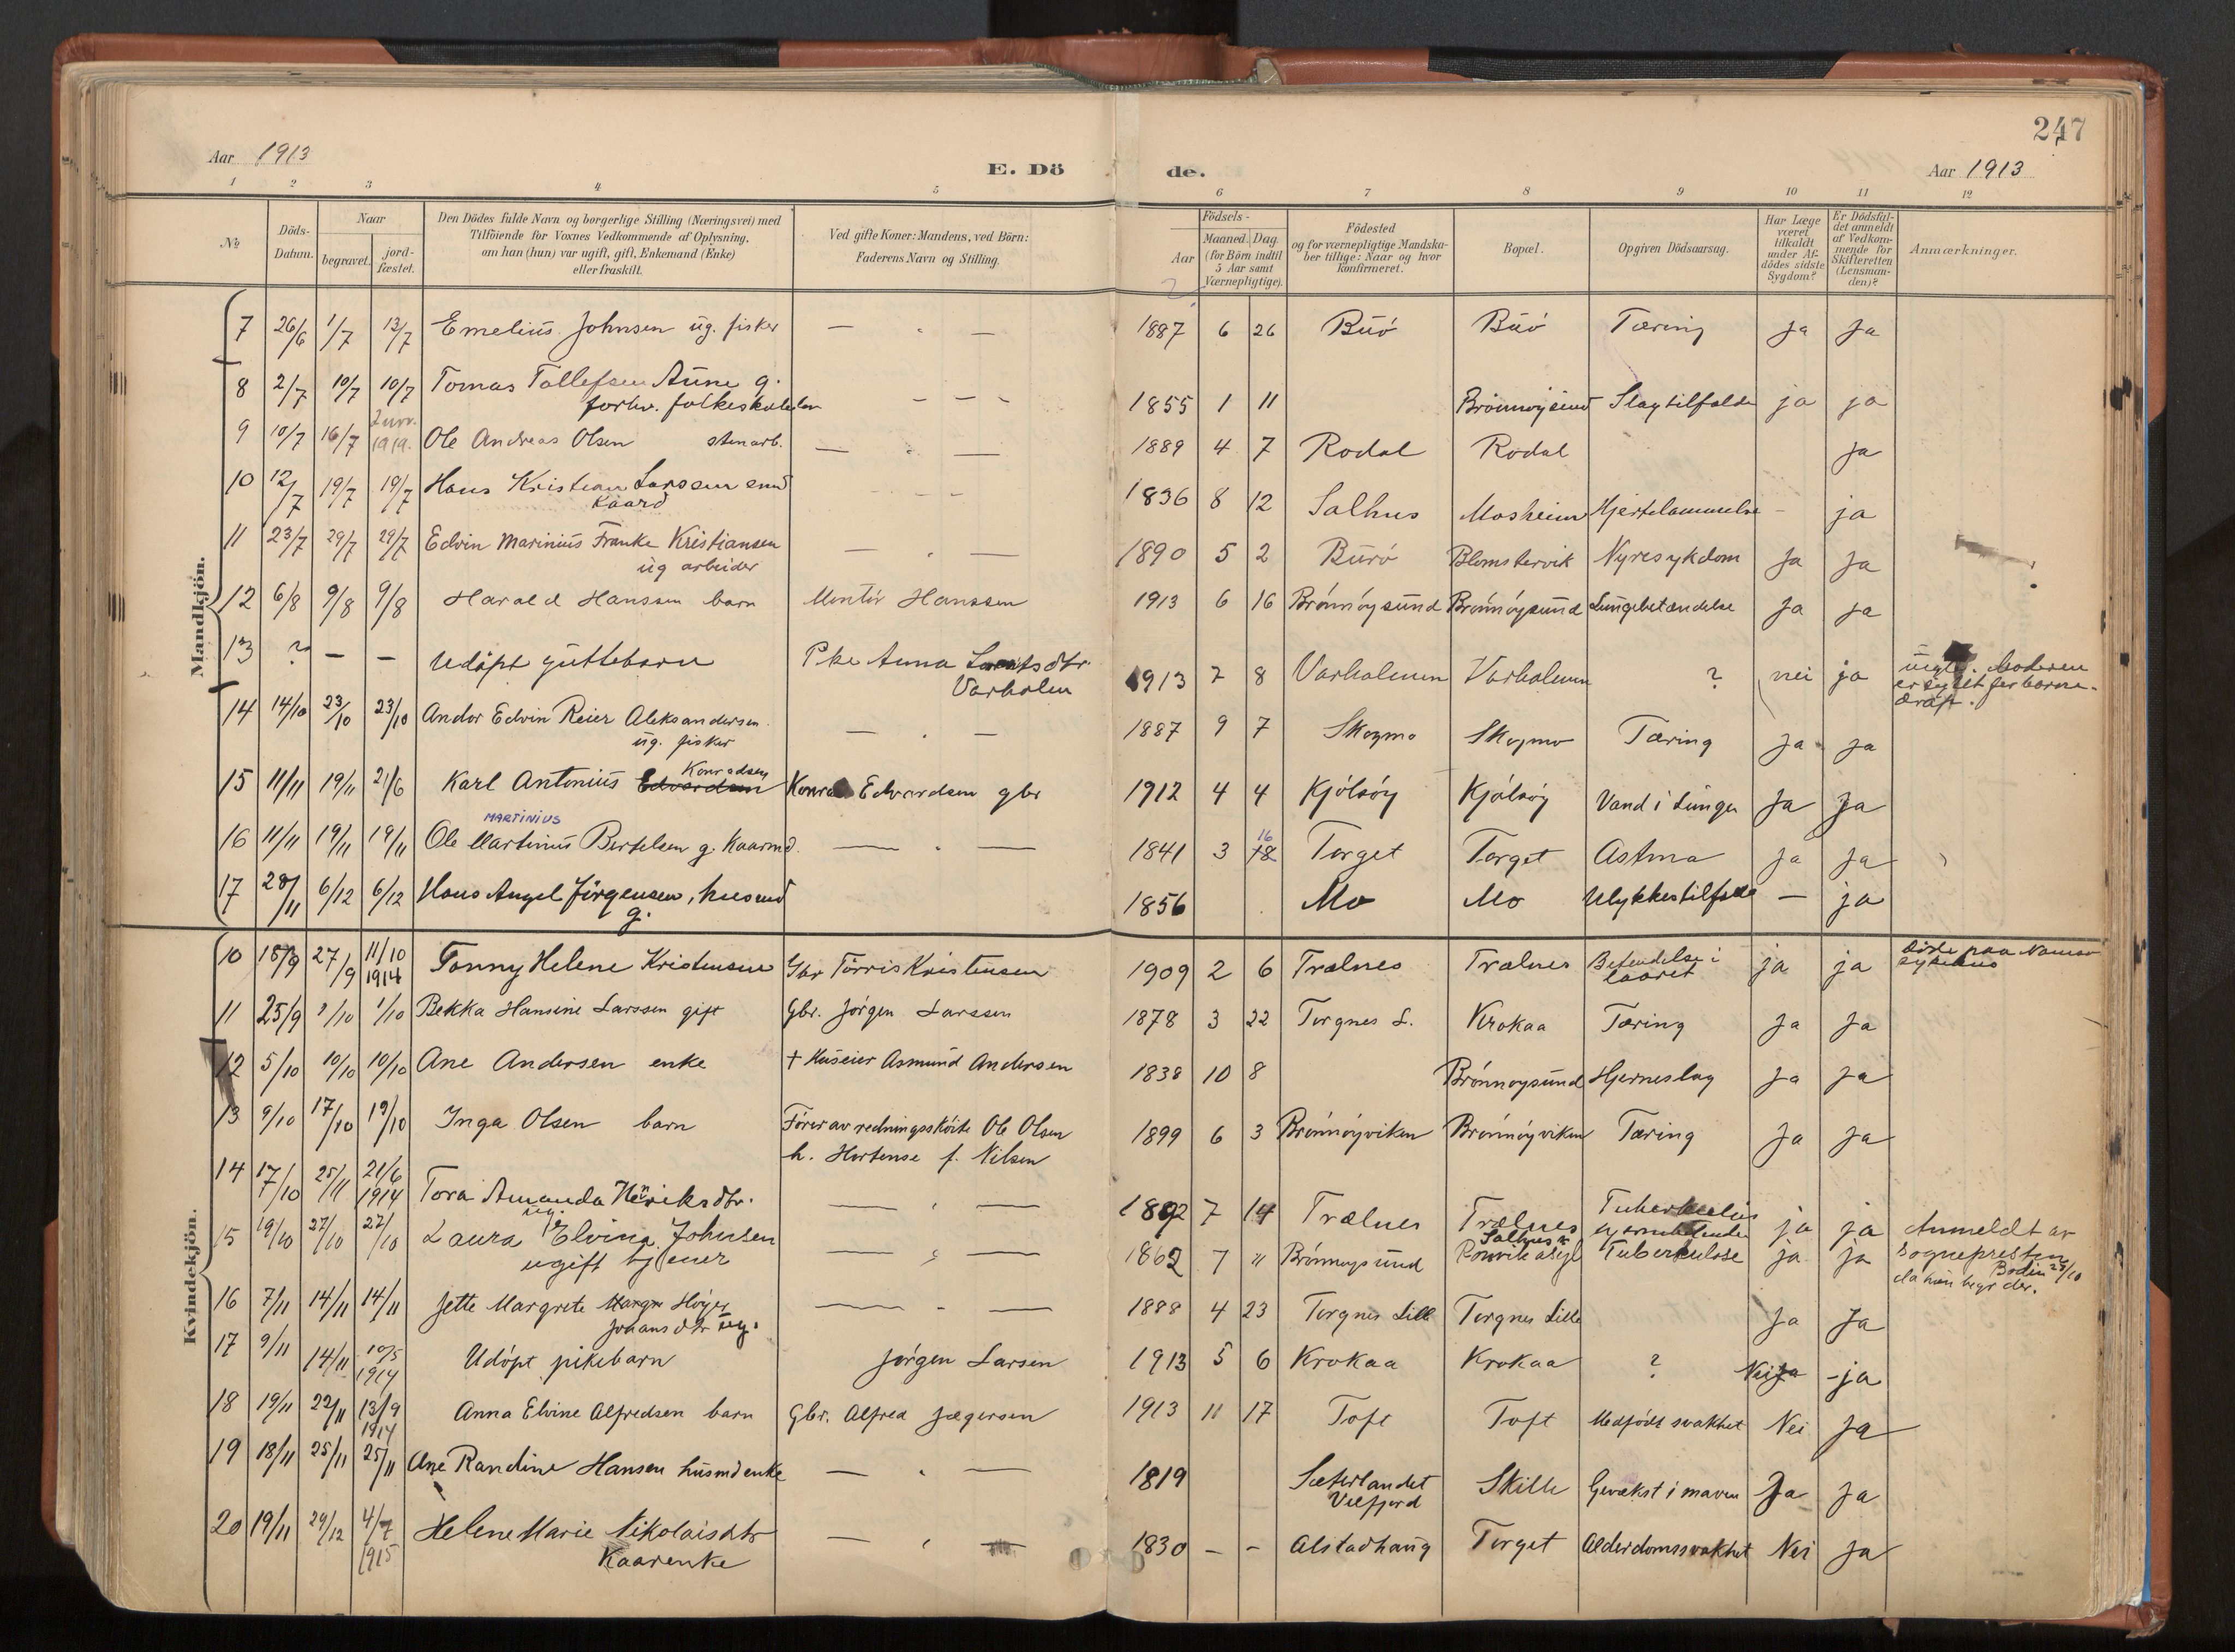 247
Aar 1913
E. Dö
de.
Aar 1913
1 2 3 4 5 6 7 8 9 10 11 12
№
Döds-
Datum.
Naar
begravet.
jord-
fæstet.
Den Dödes fulde Navn og borgerlige Stilling (Næringsvei) med
Tilföiende for Voxnes Vedkommende af Oplysning,
om han (hun) var ugift, gift, Enkemand (Enke)
eller fraskilt.
Ved gifte Koner: Mandens, ved Börn:
Faderens Navn og Stilling.
Födsels-
Aar
Maaned. Dag.
(for Börn indtil
5 Aar samt
Værnepligtige).
Födested
og for værnepligtige Mandska-
ber tillige: Naar og hvor
konfirmeret.
Bopæl.
Opgiven Dödsaarsag.
Har Læge
været
tilkaldt
under Af-
dödes sidste
Sygdom?
Er Dödsfal-
det anmeldt
af Vedkom-
mende for
Skifteretten
(Lensman-
den)?
Anmærkninger.
Mandkjön.
7 26/6 1/7 13/7 Emelius Johnsen ug. fisker — " — 1887 6 26 Buö Buö Tæring Ja Ja
8 2/7 10/7 10/7 Tomas Tollefsen Aune g.
forhv. folkeskole — — — 1855 1 11 Brönnöysund Slagtilfælde ja ja
9 10/7 16/7 1919. Ole Andreas Olsen stenarb. — " — 1889 4 7 Rodal Rodal Ja
10 12/7 19/7 19/7 Hans Kristian Larssen enm
kaard 1836 8 12 Salhus Mosheim Hjertelammelse - ja
11 23/7 29/7 29/7 Edvin Marinius Franke Kristiansen
ug arbeider — " — 1890 5 2 Burö Blomstervik Nyresykdom Ja Ja
12 6/8 9/8 9/8 Harald Hanssen barn Montör Hanssen 1913 6 16 Brönnöysund Brönnöysund Lungebetændelse Ja Ja
13 ? — — Udöpt guttebarn Pke Anna
Varholm 1913 7 8 Varholmen Varholmen ? nei ja Moderen
er sigtet for barne-
drap.
14 14/10 23/10 23/10 Andor Edvin Reier Aleksandersen
ug. fisker — " — 1887 9 7 Skogmo Skogmo Tæring Ja Ja
Konradsen
15 11/11 19/11 21/6 Karl Antonius Edvardsen Konrad Edvardsen gbr 1912 4 4 Kjölsöy Kjölsöy Vand i Lunger Ja Ja
MARTINIUS 16
16 11/11 19/11 19/11 Ole Martinus Bertelsen g. Kaarmd. — " — 1841 3 18 Torget Torget Astma Ja Ja
17 28/11 6/12 6/12 Hans Angel Jörgensen, husmd
g. 1856 Mo Mo Ulykkestilfælde — ja
Kvindekjön.
10 18/9 27/9 11/10
1914 Fonny Helene Kristensen Gbr Törris Kristensen 1909 2 6 Trælnes Trælnes Betændelse i
laaret ja ja döde paa Namsos
sykehus
11 25/9 1/10 1/10 Bekka Hansine Larssen gift Gbr. Jörgen Larssen 1878 3 22 Torgnes L. Krokaa Tæring Ja Ja
12 5/10 10/10 10/10 Ane Andersen enke + Huseier Asmund Andersen 1838 10 8 Brönnoysund Hjerneslag Ja Ja
13 9/10 17/10 19/10 Inga Olsen barn Förer av redningsskóite Ole Olsen
h. Hortense f. Nilsen 1899 6 3 Brönnöyviken Brönnöyviken Tæring Ja Ja
14 17/10 25/11 21/6
1914 Tora Amanda Henriksdtr.
ug. — " — 1892 7 14 Trælnes Trælnes ja ja
15 19/10 27/10 27/10 Laura Elvine Johnsen
ugift tjener — " — 1862 7 " Brönnoysund Salhus
Rönvik asyl Tuberkulose ja ja Anmeldt av
sognepresten
Bodin 24/10
da hun begr der.
16 7/11 14/11 14/11 Jette Margrete Höyer
Johansdtr ug. — " — 1888 4 23 Torgnes Lille Torgnes Lille Ja Ja
17 9/11 14/11 10/5
1914 Udöpt pikebarn Jörgen Larsen 1913 5 6 Krokaa Krokaa ? Nei Ja -ja
18 19/11 22/11 13/9
1914 Anna Elvine Alfredsen barn Gbr. Alfred Jægersen 1913 11 17 Toft Toft Medfödt svakhet Nei Ja
19 18/11 25/11 25/11 Ane Randine Hansen husmdenke — " — 1819 Sæterlandet
Velfjord Skille Gevækst i maven Ja Ja
20 19/11 29/12 4/7
1915 Helene Marie Nikolaisdtr
Kaarenke — " — 1830 - - Alstadhaug Torget Alderdomssvakhet Nei Ja